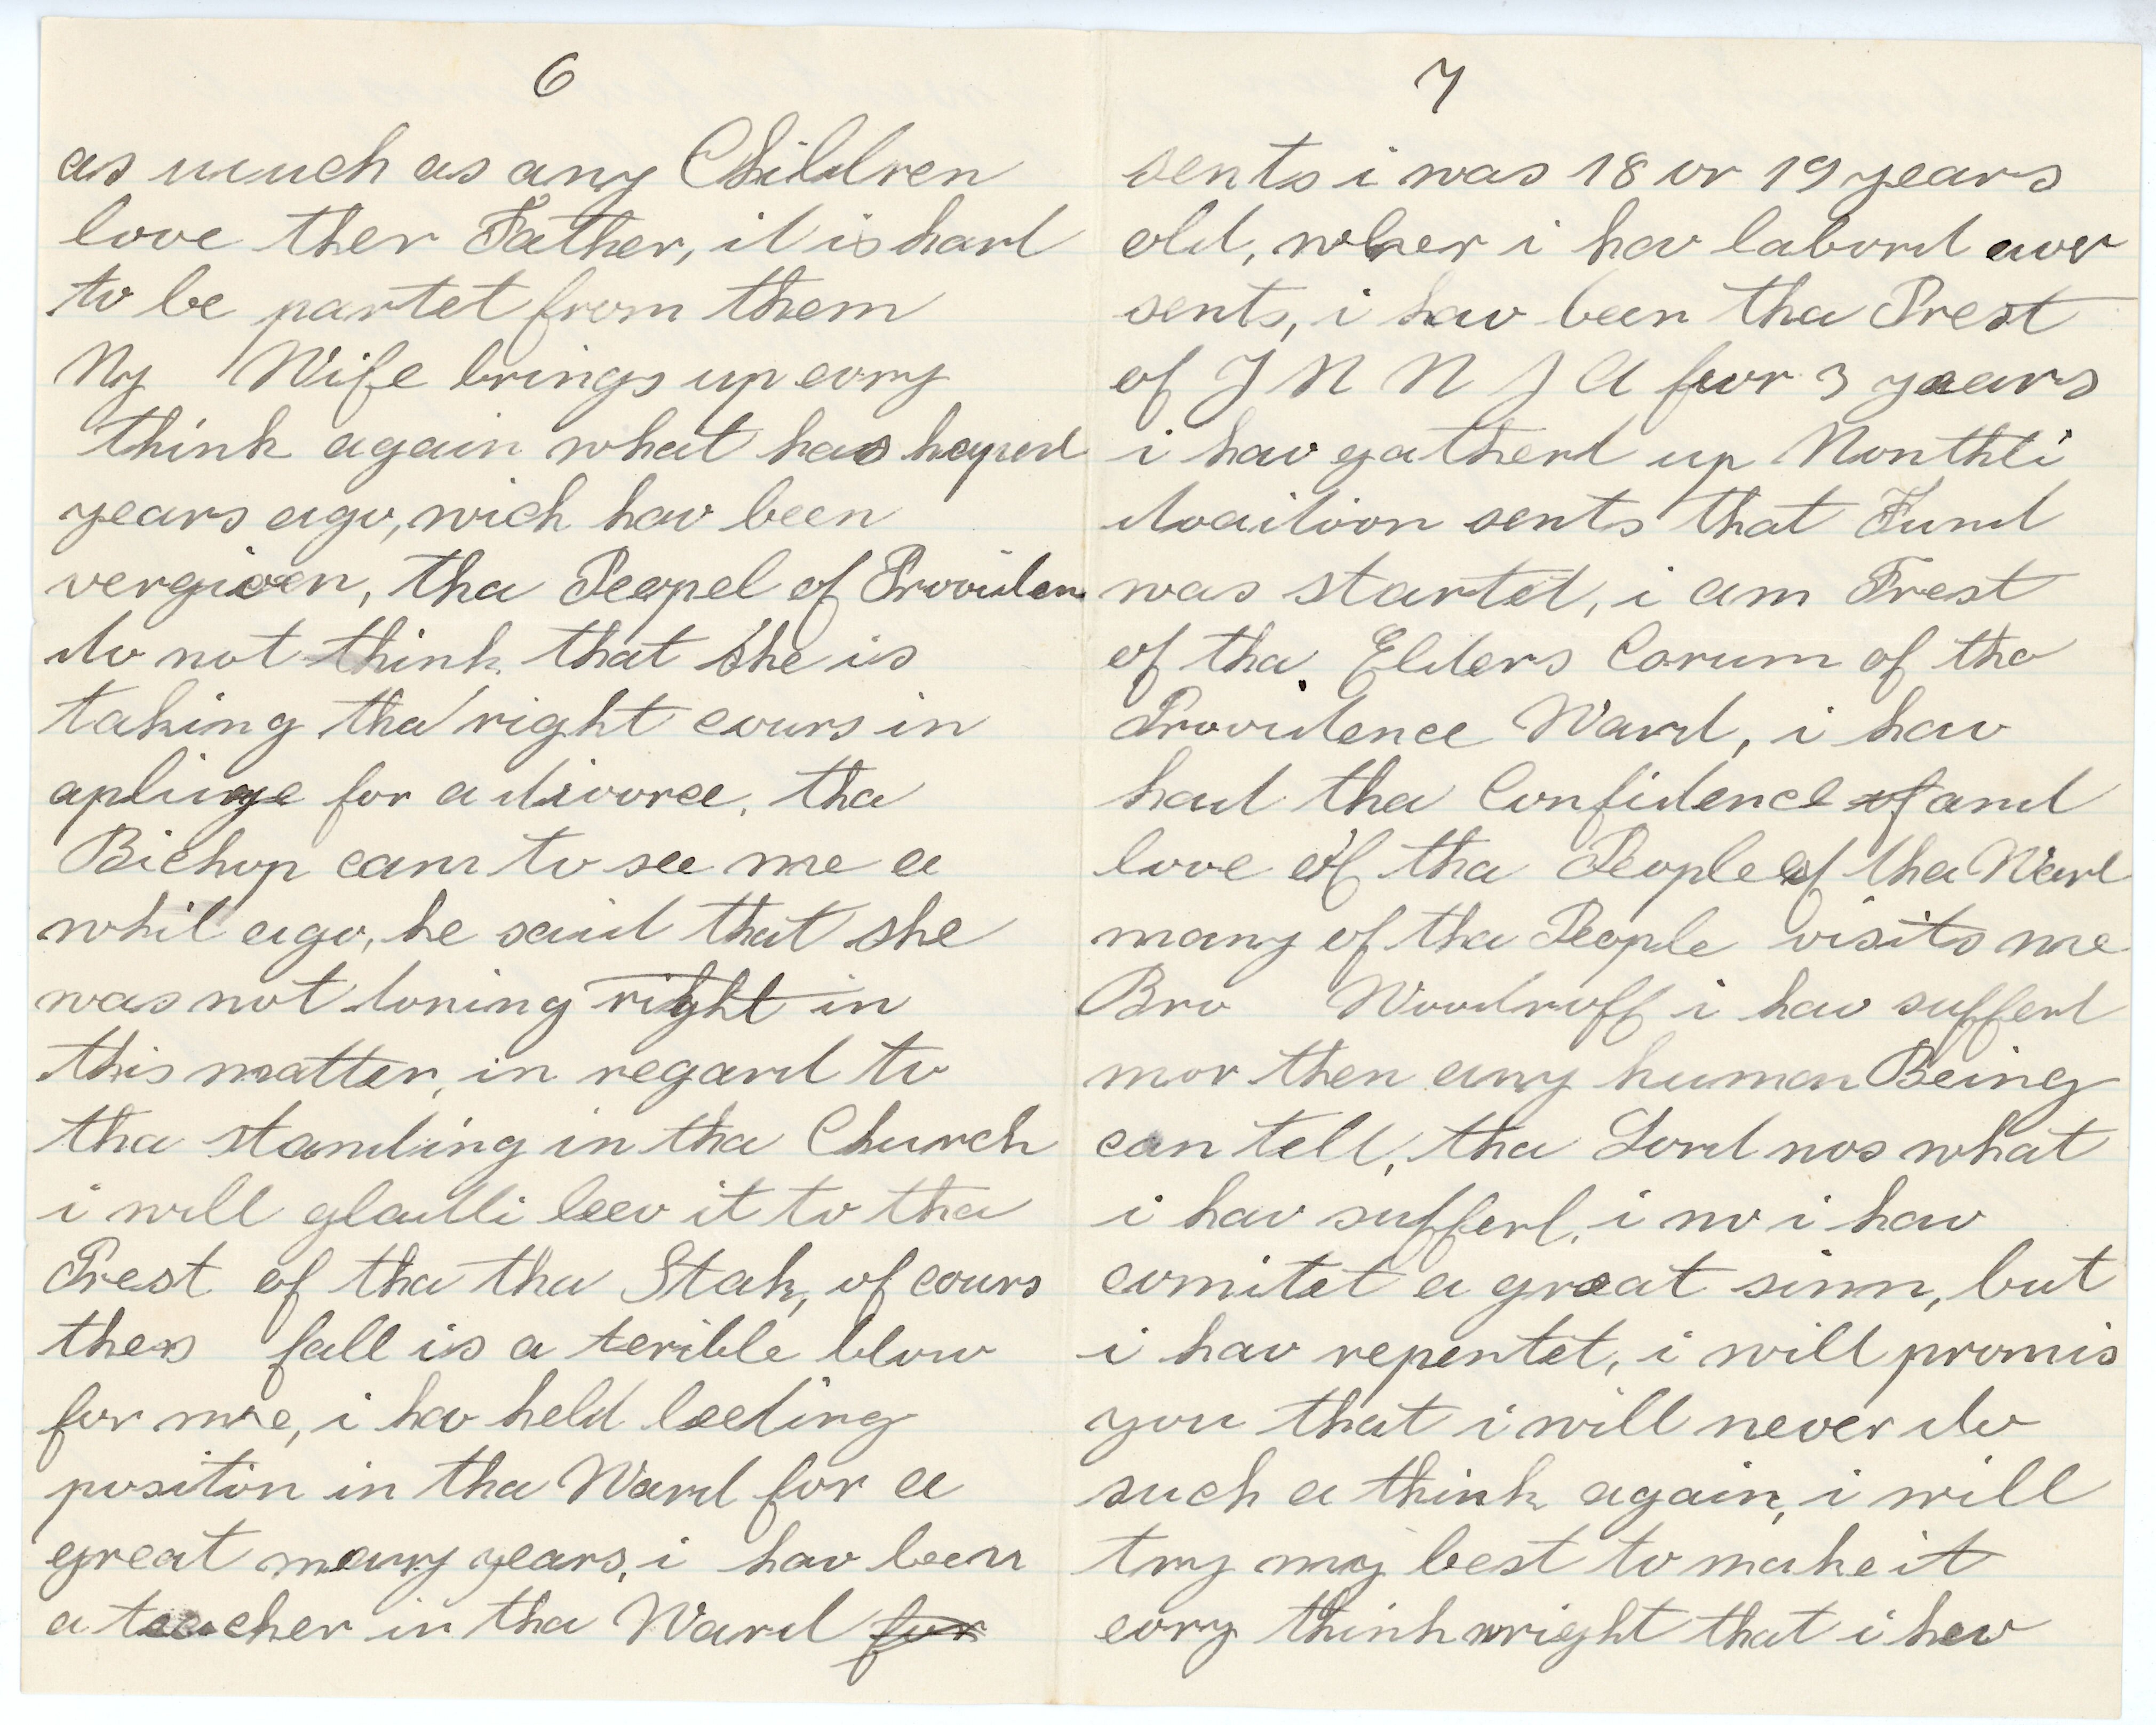 6
as much as any Children
love ther Father, it is hard
to be partet from them
My Wife brings up evry
think again what has hapend
years ago, wich hav been
vergiven, tha Peopel of Providen
do not think that she is
taking tha right cours in
aplinge for a divorce, tha
Bichop cam to see me a
whil ago, he said that she
was not doning right in
this matter, in regard to
tha standing in tha Church
i will gladli leev it to tha
Prest of tha tha Stak, of cours
thes fall is a terible blow
for me, i hav held leeding
position in tha Ward for a
great many years, i hav been
a teacher in tha Ward for
7
sents i was 18 or 19 years
old, wher i hav labord aver
sents, i hav been tha Prest
of Y M M J A for 3 years
i hav gatherd up Monthli
doaition sents that Fund
was startet, i am Prest
of tha Elders Corum of tha
Providence Ward, i hav
had tha Confidence of and
love of tha People of tha Ward
many of tha People visits me
Bro Woodruff i hav sufferd
mor then any human Being
can tell, tha Lord nos what
i hav sufferd, i no i hav
comitet a great sinn, but
i hav repentet, i will promis
you that i will never do
such a think again, i will
try my best to make it
evry think wright that i hav